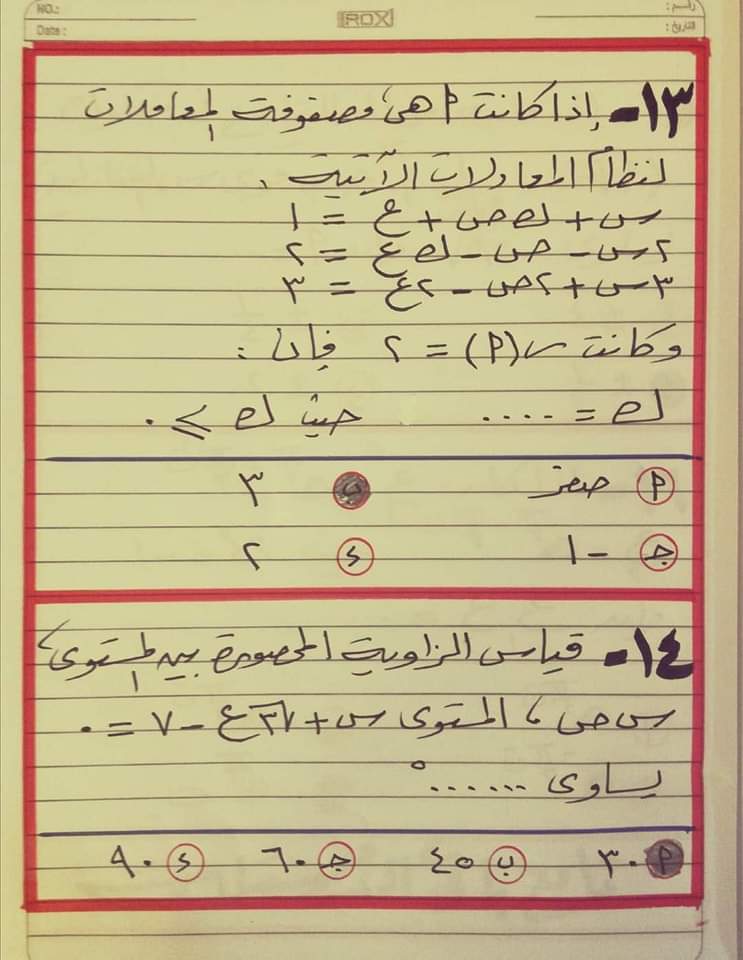 NO.:
Date:
ROX
رقم :
التاريخ :
١٣- إذا كانت P هى مصفوفة المعاملات
لنظام المعادلات الآتية :
س + ك ص + ع = ١
٢س - ص - ك ع = ٢
٣س + ٢ص - ٢ع = ٣
وكانت س(P) = ٢ فإن :
ك = .... حيث ك ≥ ٠
P صفر ب ٣
جـ -١ د ٢
١٤- قياس الزاوية المحصورة بين المستوى
س ص ، المستوى س + √٣ ع - ٧ = ٠
يساوى .......°
P ٣٠ ب ٤٥ جـ ٦٠ د ٩٠